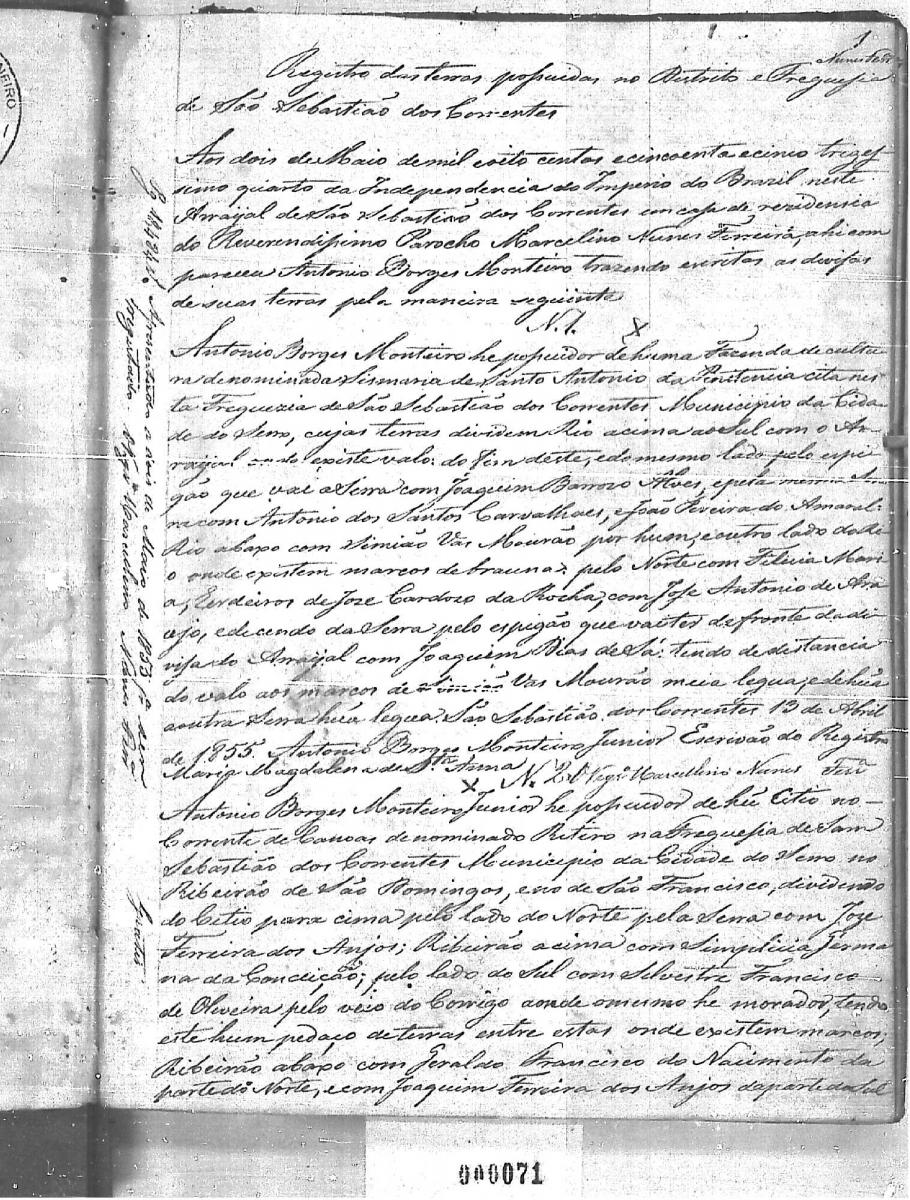 1
Nunes Ferr.ª
Registro das terras possuidas no Distrito e Freguesia
de São Sebastião dos Correntes
Aos dois de Maio de mil oito centos e cincoenta e cinco triges-
simo quarto da Independencia do Imperio do Brazil neste
Arraijal de São Sebastião dos Correntes em casa de rezidencia
do Reverendissimo Parocho Marcelino Nunes Ferreira, ahi com
pareceu Antonio Borges Monteiro trazendo escritas as devisas
de suas terras pela maneira seguinte
N. 1. X
Antonio Borges Monteiro he possuidor de huma Fazenda de cultu
ra denominada Sismaria de Santo Antonio da Penitencia cita nes
ta Freguezia de São Sebastião dos Correntes Municipio da Cida
de do Serro, cujas terras dividem Rio acima ao Sul com o Ar-
raijal onde existe valo: do fim deste, e do mesmo lado pelo espi
gão que vai a Serra com Joaquim Barrozo Alves, e pela mesma Se
rra com Antonio dos Santos Carvalhaes, e João Pereira do Amaral:
Rio abaxo com Simião Vas Mourão por hum, e outro lado do Ri
o onde existem marcos de brauna: pelo Norte com Felicia Mari
a, Erdeiros de Joze Cardozo da Rocha, com Joze Antonio de Ara
ujo, e decendo da Serra pelo espigão que vai ter defronte da di
visa do Arraijal com Joaquim Dias de Sá: tendo de distancia
do valo aos marcos de Simião Vas Mourão meia legua, e de hũa
a outra Serra hũa legua. São Sebastião dos Correntes 13 de Abril
de 1855. Antonio Borges Monteiro Junior Escrivão do Registro
Maria Magdalena de St.ª Anna
X N. 2. O Vigr.º Marcellino Nunes Ferr.ª
Antonio Borges Monteiro Junior he possuidor de hũ Citio no
Corrente de Canoas denominado Retiro na Freguesia de Sam
Sebastião dos Correntes Municipio da Cidade do Serro no
Ribeirão de São Domingos, e no de São Francisco, dividendo
do Citio para cima pelo lado do Norte pela Serra com Joze
Ferreira dos Anjos; Ribeirão acima com Simplicia Jerma
na da Condição; pelo lado do Sul com Silvestre Francisco
de Oliveira pelo veio do Corrigo aonde o mesmo he morador, tendo
este hum pedaço de terras entre estas onde existem marcos;
Ribeirão abaxo com Geraldo Francisco do Nacimento da
parte do Norte, e com Joaquim Ferreira dos Anjos da parte do Sul
Apresentada a dois de Maio de 1855
registrada. O Vigr.º Marcellino Nunes Ferr.ª
NEIRO
000071